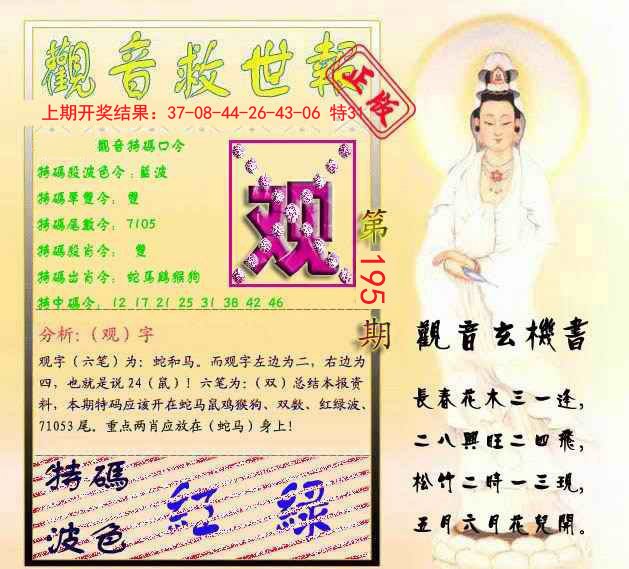 觀音救世報
正版
上期开奖结果：37-08-44-26-43-06 特31
觀音特碼口令
特碼段波色令：藍波
特碼單雙令： 雙
特碼尾數令： 7105
特碼段肖令： 雙
特碼出肖令： 蛇馬鷄猴狗
特中碼令： 12 17 21 25 31 38 42 46
观
第195期
分析:（观）字
观字（六笔）为：蛇和马。而观字左边为二，右边为
四，也就是说24（鼠）！六笔为:（双）总结本报资
料，本期特码应该开在蛇马鼠鸡猴狗、双数、红绿波、
71053 尾。重点两肖应放在（蛇马）身上！
特碼
波色
紅 綠
觀音玄機書
長春花木三一逢，
二八興旺二四飛，
松竹二時一三現，
五月六月花兒開。